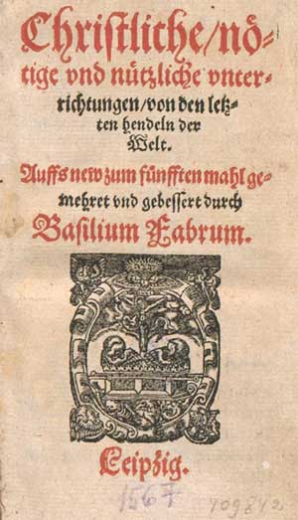 Christliche/nö-
tige vnd nützliche vnter-
richtungen/von den letz-
ten hendeln der
Welt.
Auffs new zum fünfften mahl ge-
mehret vnd gebessert durch
Basilium Fabrum.
Leipzig.
1567 709872